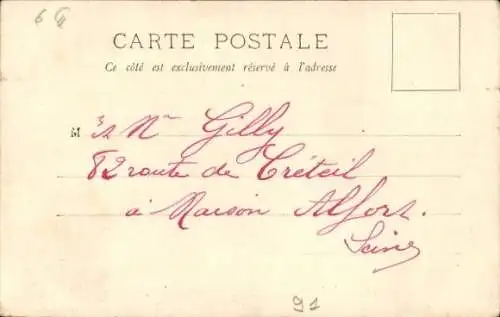 CARTE POSTALE
Ce côté est exclusivement réservé à l'adresse
M Gilly
82 route de Créteil
à Maison Alfort.
Seine
91